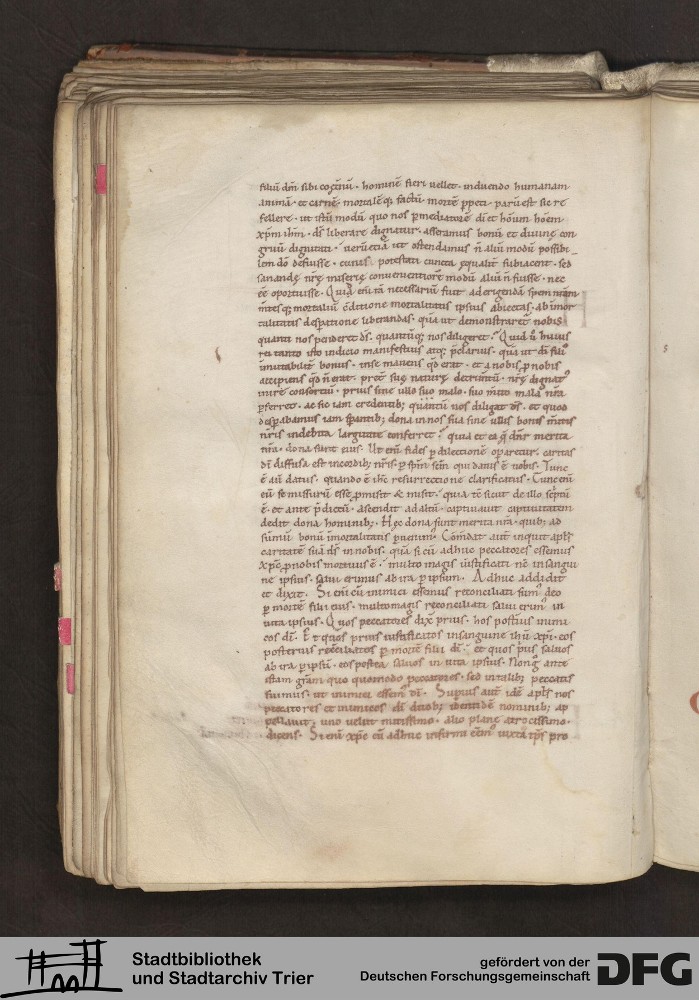 filiū dm̄ sibi coęt̄nū · hominē fieri vellet · induendo humanam
animā · et carnē mortalēq; factū mortē ꝑpeti · parū est sic re
fellere · ut istū modū quo nos ꝑ mediatorē dī et hoīum hoīem
xp̄m ihm̄ · dś liberare dignatur · asseramus bonū et diuinę con
gruū dignitati · uerū etiā ut ostendamus n̄ aliū modū possibi-
lem dō defuisse · cuius potestati cuncta ęqualit̄ subiacent · sed
sanandę nrę miserię conuenientiorē modū aliū n̄ fuisse · nec
eē oportuisse · Quid enī tā necessariū fuit ad erigendā spem nrām
mtesq; mortaliū c̄ditione mortalitatis ipsius abiectas · ab īmor
talitatis desꝑatione liberandas · quā ut demonstraret̄ nobis
quanti nos penderet dś · quantūq; nos diligeret · Quid ū huius
rei tanto isto indicio manifestius atq; p̄clarius · quā ut dī filiꝰ
īmutabilit̄ bonus · in se manens qd̄ erat · et a nobis ꝓ nobis
accipiens qd̄ n̄ erat · pret̄ suę naturę detrim̄tū · nrę dignatꝰ
inire consortiū · prius sine ullo suo malo · suo m̄ito mala nrā
ꝑferret · ac sic iam credentib; quantū nos diligat dś · et quod
desꝑabamus iam sꝑantib; dona in nos sua sine ullis bonis m̄itis
nrīs indebita largitate conferret · quia et ea q̄ dnr̄ merita
nrā · dona sunt eius · Ut enī fides ꝑ dilectionē oꝑaretur · caritas
dī diffusa est in cordib; nrīs · ꝑ spm̄ scm̄ qui datus ē nobis · Tunc
ē aū datus · quando ē ihc̄ resurrectione clarificatus · Tunc enī
eū se missurū esse ꝓmisit & misit · quia tc̄ sicut de illo sc̄ptū
ē · et ante p̄dictū · ascendit ad altū · captiuauit captiuitatem
dedit dona hominib; · Hęc dona sunt merita nrā · quib; ad
sūmū bonū īmortalitatis ꝑuenim̄ · Com̄dat aut̄ inquit apls̄
caritatē suā dś in nobis · quā si cū adhuc peccatores essemus
xp̄c ꝓ nobis mortuus ē · multo magis iustificati nc̄ in sangui
ne ipsius · salui erimus ab ira ꝑ ipsum · Adhuc addidit
et dixit · Si enī cū inimici essemus reconciliati sumꝰ deo
ꝑ mortē filii eius · multomagis reconciliati salui erimꝰ in
uita ipsius · Quos peccatores dix̄ prius · hos postīus inimi
cos dī · Et quos prius iustificatos in sanguine ihū xp̄i · eos
posterius recc̄iliatos ꝑ mortē filii dī · et quos p̄us saluos
ab ira ꝑ ipsū · eos postea saluos in uita ipsius · Non gͦ ante
istam grām quo quomodo peccatores · sed in talib; peccatis
fuimus · ut inimici essemꝰ dī · Supius aut̄ idē apls̄ nos
peccatores et inimicos dī duob; identidē nominib; ap
pellauit · uno uelut mitissimo · alio planę atrocissimo ·
dicens · Si enī xp̄c cū adhuc infirmi eēmꝰ iuxta tp̄s pro
Stadtbibliothek
und Stadtarchiv Trier
gefördert von der
Deutschen Forschungsgemeinschaft
DFG